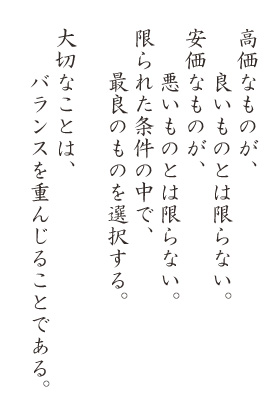 高価なものが、
良いものとは限らない。
安価なものが、
悪いものとは限らない。
限られた条件の中で、
最良のものを選択する。
大切なことは、
バランスを重んじることである。